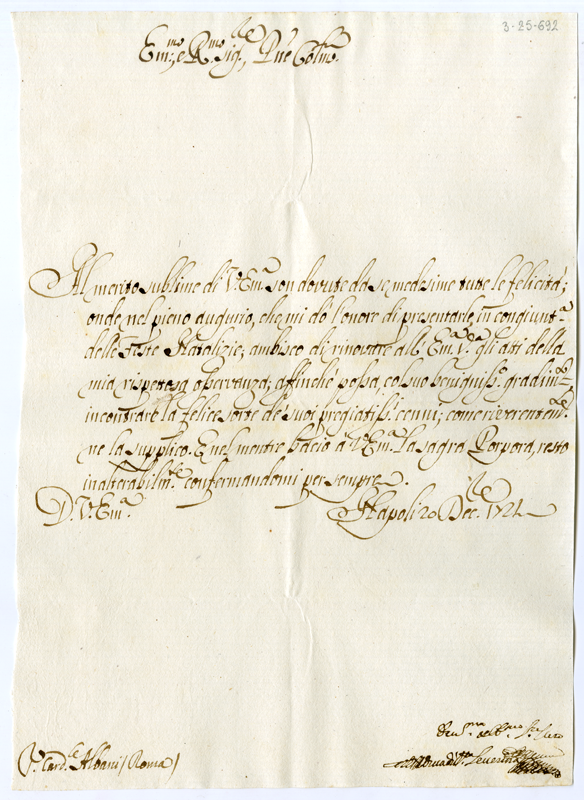 3-25-692
Em.mo e R.mo Sig.re, P̃ne Col.mo
Al merito sublime di V. Em.a son dovute da se medesime tutte le felicità;
onde nel pieno augurio, che mi dò l'onore di presentarle in congiunt.a
delle Feste Natalizie, ambisco di rinovare all' Em.a V.a gli atti della
mia rispetosa osservanza; affinchè possa, col suo benigniss.o gradim.to
incontrare la felice sorte de' suoi pregiatiss.i cenni; come riverentem.te
ne la supplico. E nel mentre bacio a V. Em.a la sagra Porpora, resto
inalterabilm.te confermandomi per sempre.
D. V. Em.a Napoli 20 Dec.re 172
S.r Card.le Albani (Roma)